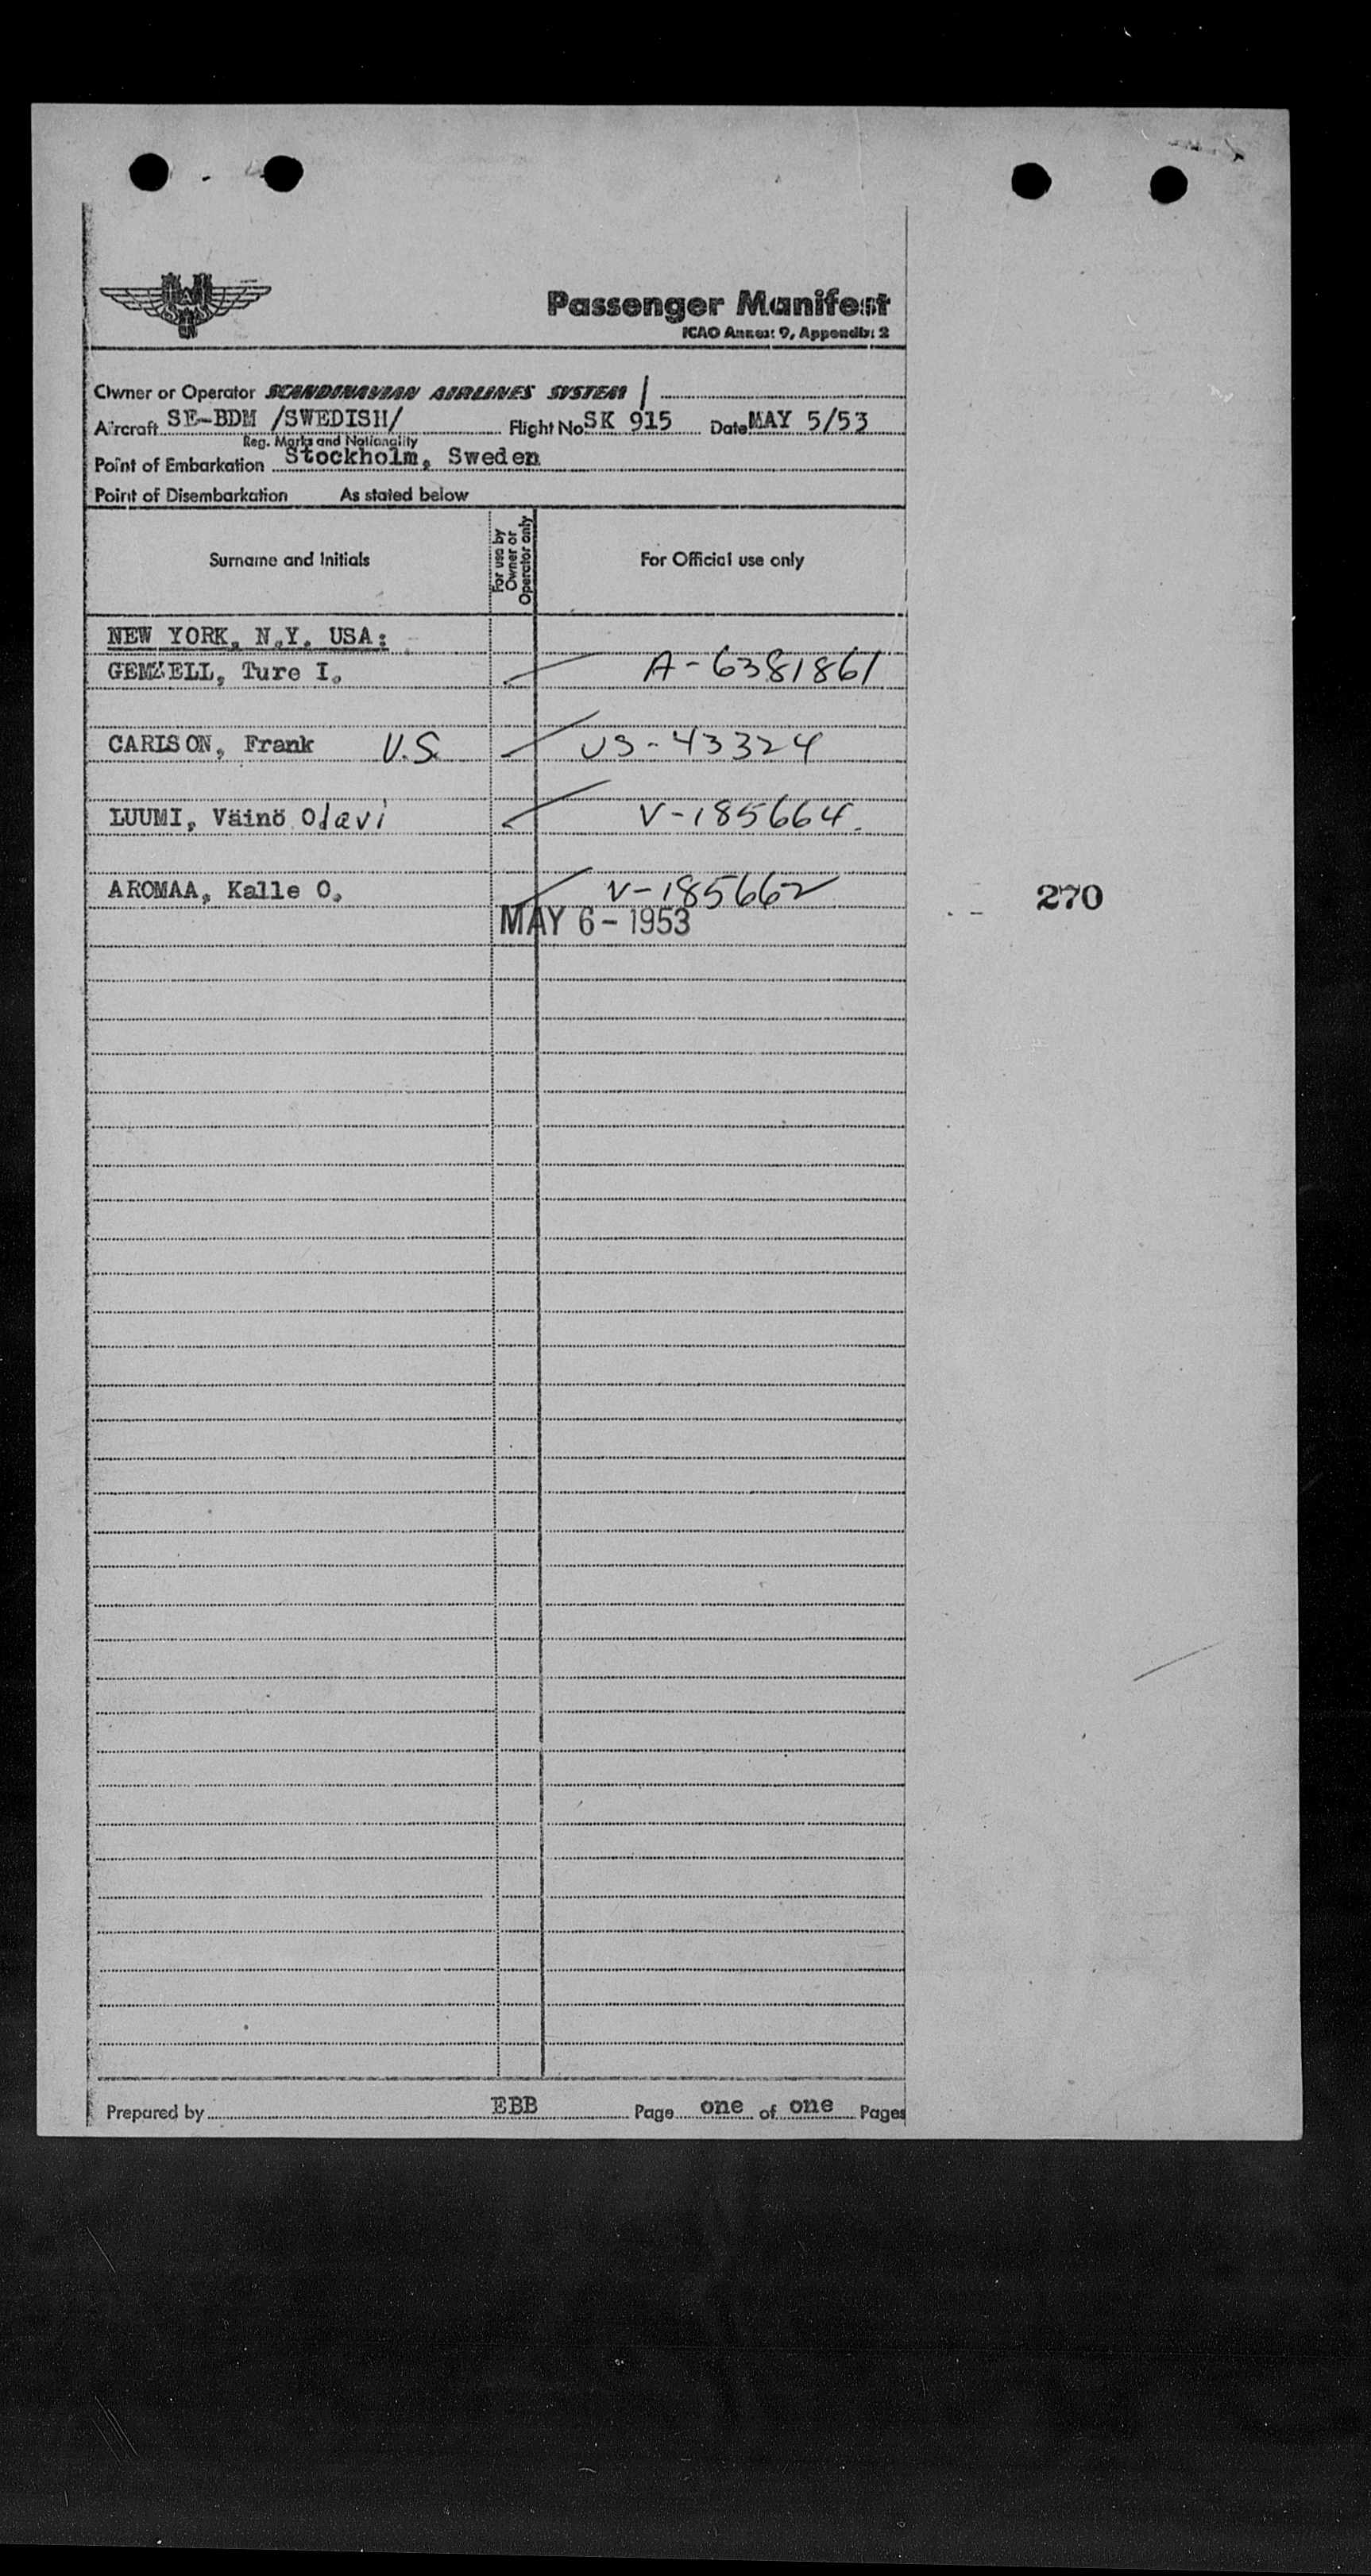 Passenger Manifest
ICAO Annex 9, Appendix 2
Owner or Operator SCANDINAVIAN AIRLINES SYSTEM
Aircraft SE-BDM /SWEDISH/ Flight No. SK 915 Date MAY 5/53
Reg. Marks and Nationality
Point of Embarkation Stockholm, Sweden
Point of Disembarkation As stated below
Surname and Initials
For use by Owner or Operator only
For Official use only
NEW YORK, N.Y. USA:
GEMZELL, Ture I. A-6381861
CARLSON, Frank U.S. US-43324
LUUMI, Väinö Olavi V-185664.
AROMAA, Kalle O. V-185662
270
MAY 6-1953
Prepared by EBB Page one of one Pages